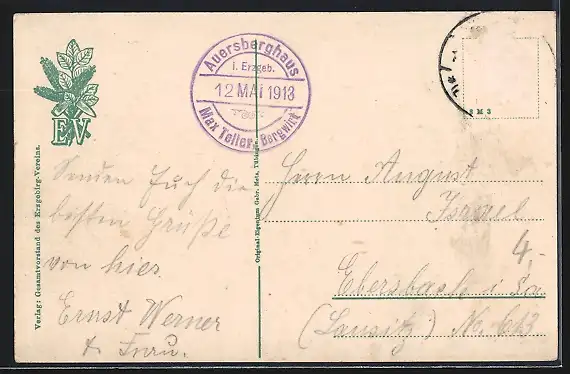 EV
Auersberghaus
i. Erzgeb.
12 MAI 1913
Max Teller, Bergwirt
8 M 3
Verlag: Gesamtvorstand des Erzgebirg-Vereins.
Original-Eigentum Gebr. Metz, Tübingen
Senden Euch die
besten Grüße
von hier.
Ernst Werner
& Frau.
Herrn August
Israel
4.-
Ebersbach i. Sa
(Lausitz) No. 613